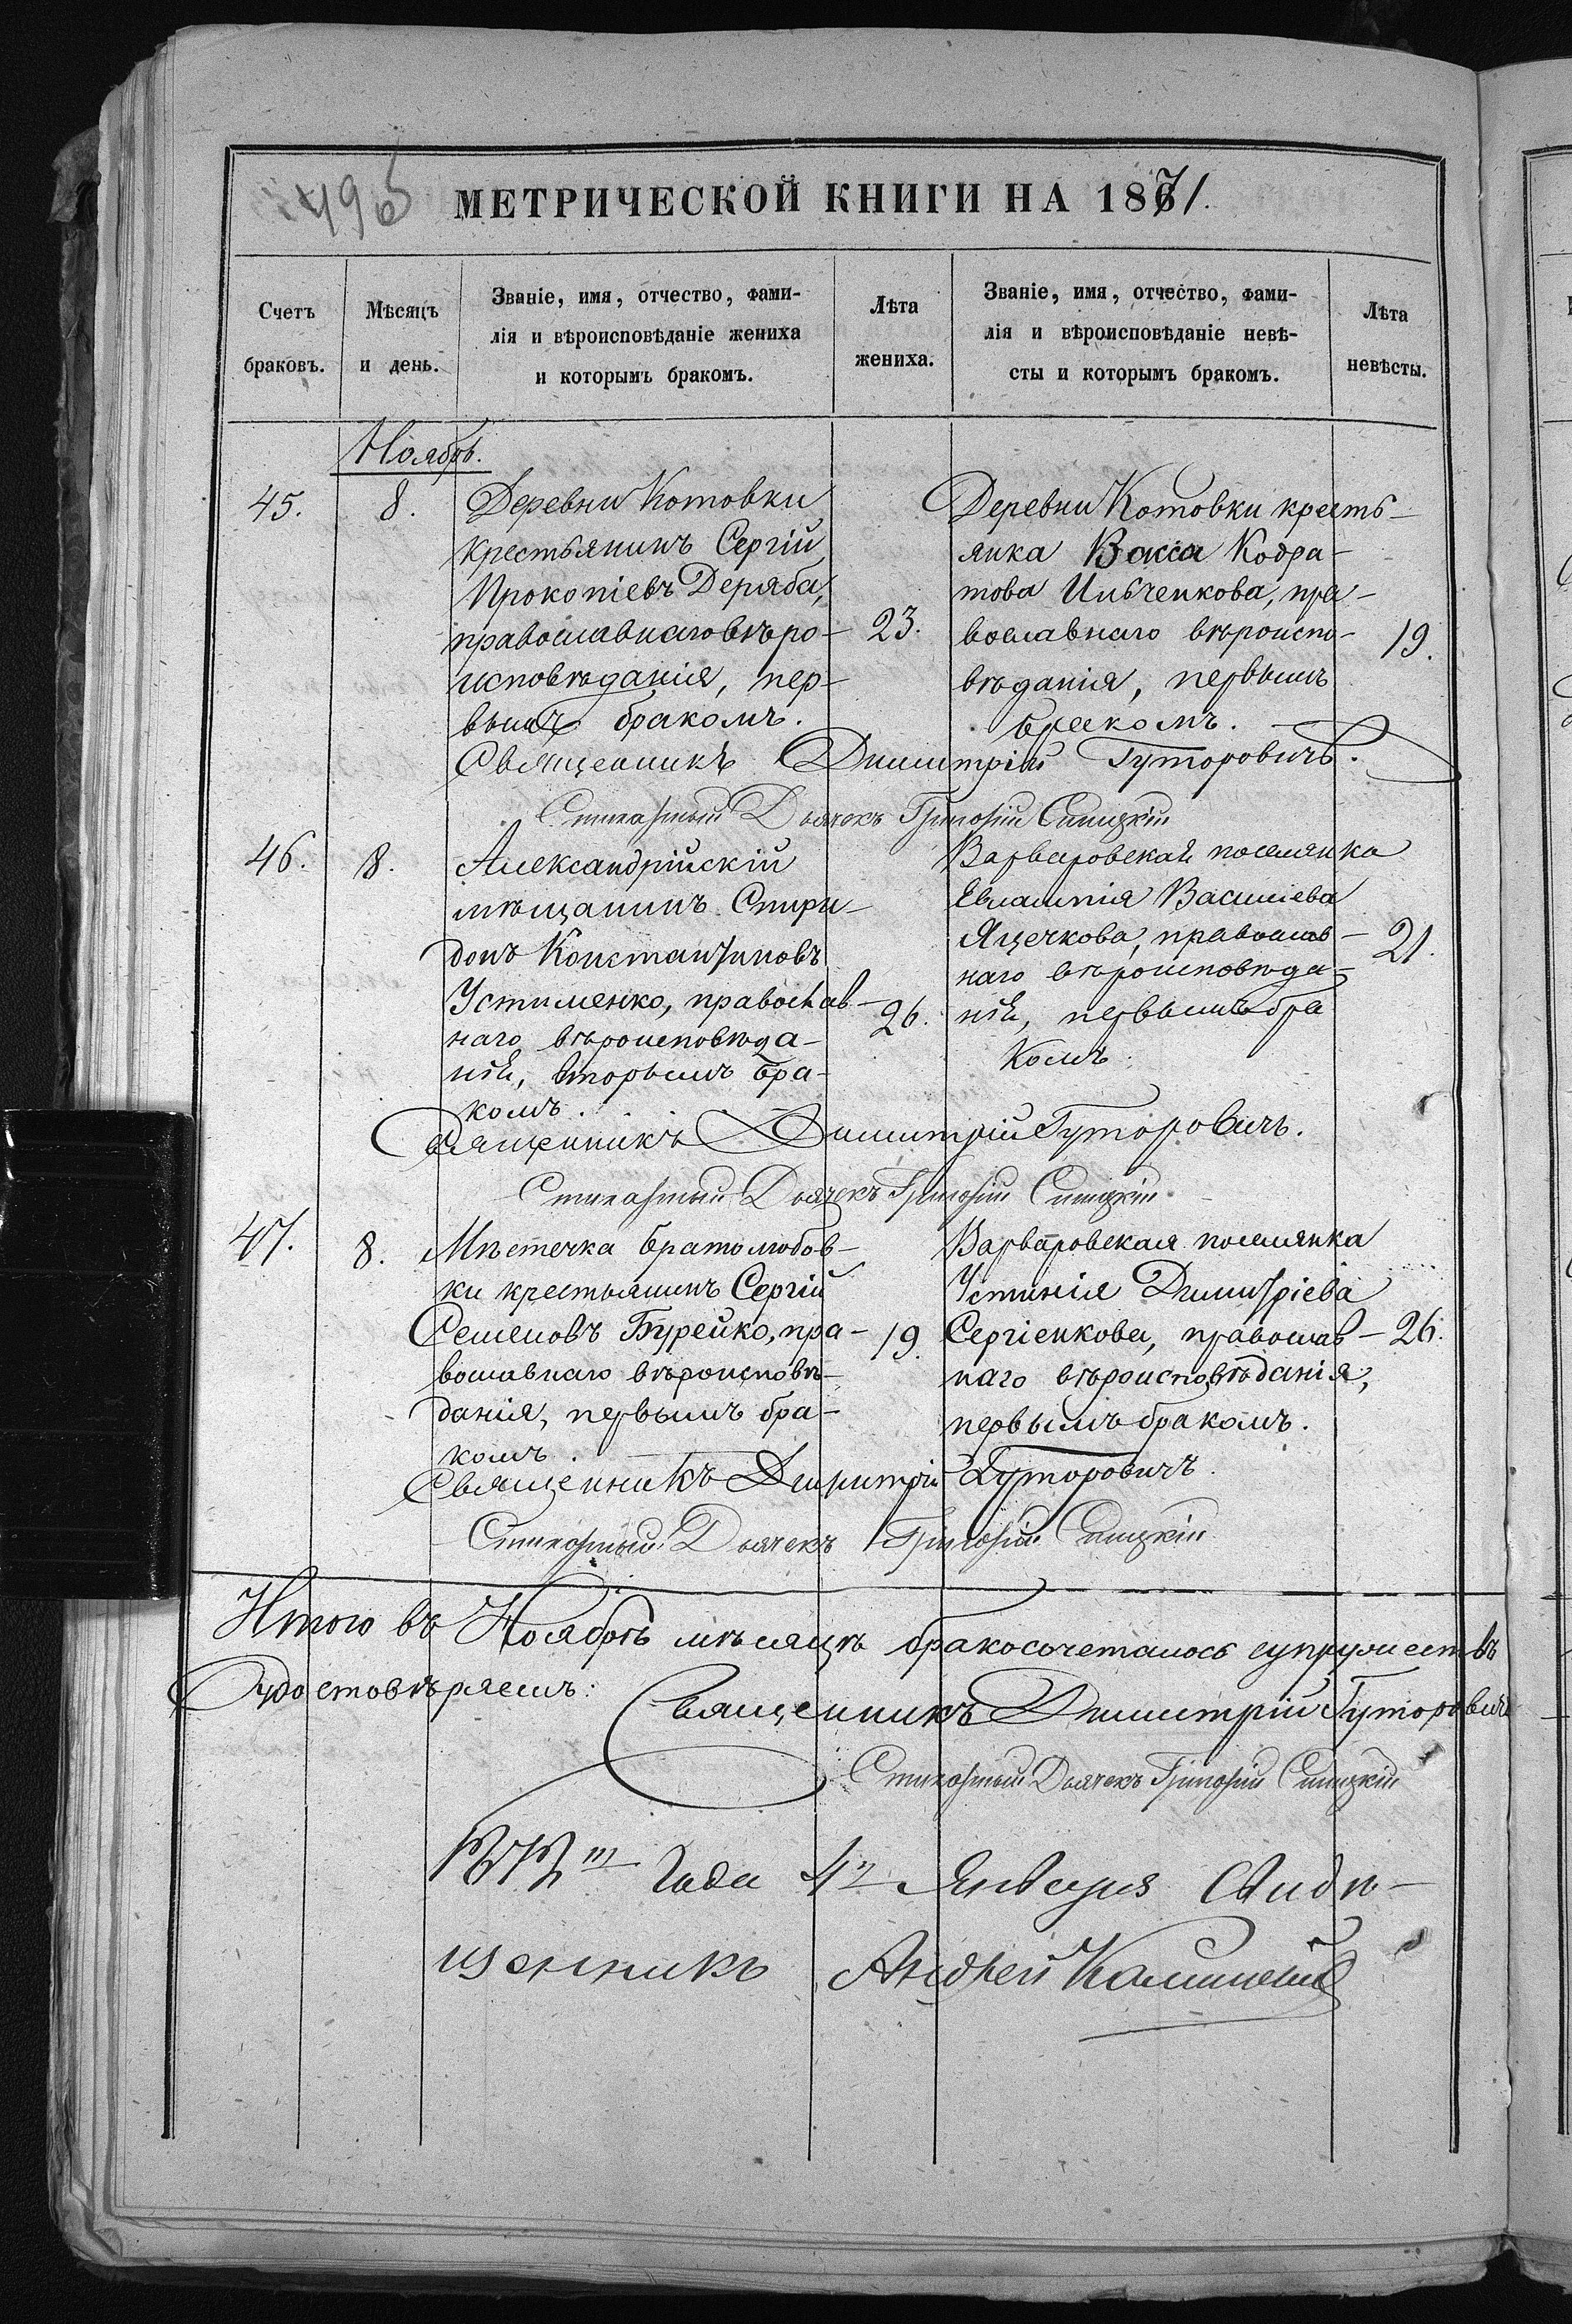 495
МЕТРИЧЕСКОЙ КНИГИ НА 1871.
Счетъ
браковъ.
Мѣсяцъ
и день.
Званіе, имя, отчество, фами-
лія и вѣроисповѣданіе жениха
и которымъ бракомъ.
Лѣта
жениха.
Званіе, имя, отчество, фами-
лія и вѣроисповѣданіе невѣ-
сты и которымъ бракомъ.
Лѣта
невѣсты.
Ноябрь.
45.
8.
Деревни Котовки
крестьянинъ Сергій
Прокопіевъ Деряба,
православнаго вѣро-
исповѣданія, пер-
вымъ бракомъ.
23.
Деревни Котовки кресть-
янка Васса Кодра-
това Ильченкова, пра-
вославнаго вѣроиспо-
вѣданія, первымъ
бракомъ.
19.
Священникъ Димитрій Гуторовичъ.
Стихарный Дьячекъ Григорій Синицкій
46.
8.
Александрійскій
мѣщанинъ Спири-
донъ Константиновъ
Устименко, православ-
наго вѣроисповѣда-
нія, вторымъ бра-
комъ.
26.
Варваровская поселянка
Евлампія Василіева
Яцечкова, православ-
наго вѣроисповѣда-
нія, первымъ бра
комъ.
21.
Священникъ Димитрій Гуторовичъ.
Стихарный Дьячекъ Григорій Синицкій
47.
8.
Мѣстечка Братолюбов-
ки крестьянинъ Сергій
Семеновъ Бурейко, пра-
вославнаго вѣроисповѣ-
данія, первымъ бра-
комъ.
19.
Варваровская поселянка
Устинія Димитріева
Сергіенкова, православ-
наго вѣроисповѣданія,
первымъ бракомъ.
26.
Священникъ Димитрій Гуторовичъ.
Стихарный Дьячекъ Григорій Синицкій
Итого въ Ноябрѣ мѣсяцѣ бракосочеталось супружествъ
Удостовѣряемъ:
Священникъ Димитрій Гуторовичъ
Стихарный Дьячекъ Григорій Синицкій
1872 Года 4 Января
Андрей